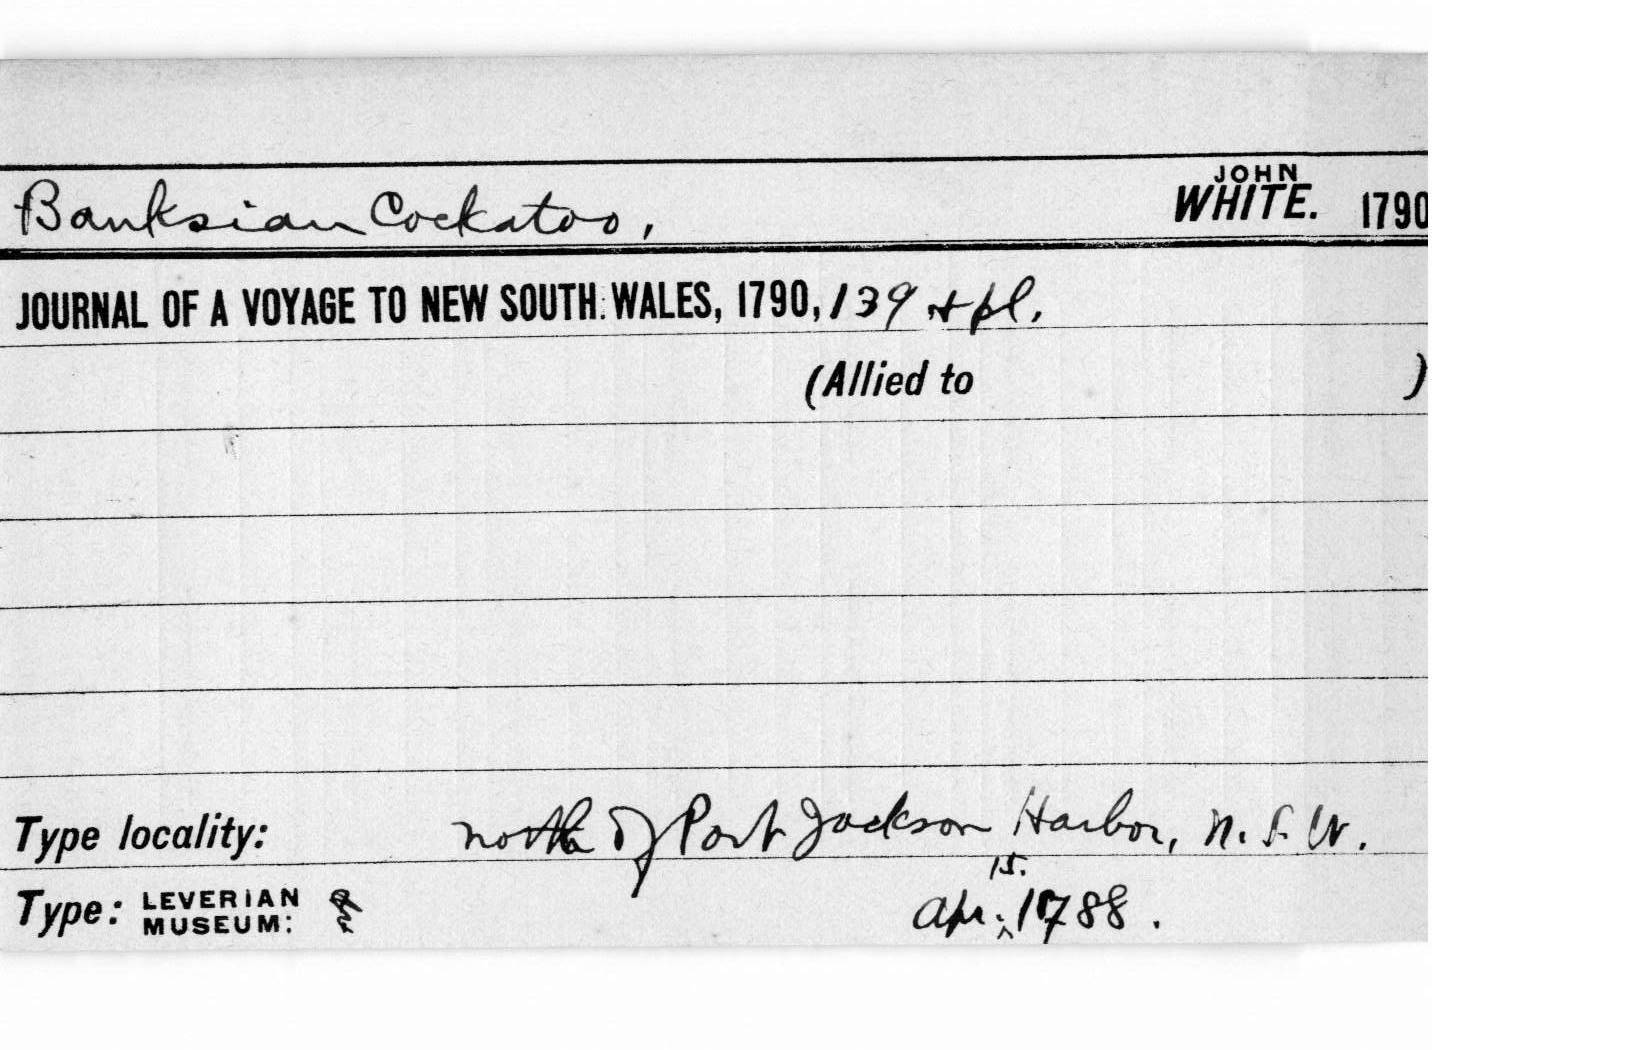 Banksian Cockatoo, JOHN WHITE. 1790
JOURNAL OF A VOYAGE TO NEW SOUTH WALES, 1790, 139 + pl.
(Allied to )
Type locality: north of Port Jackson Harbor, N. S. W.
Type: LEVERIAN MUSEUM: Apr. 15. 1788.